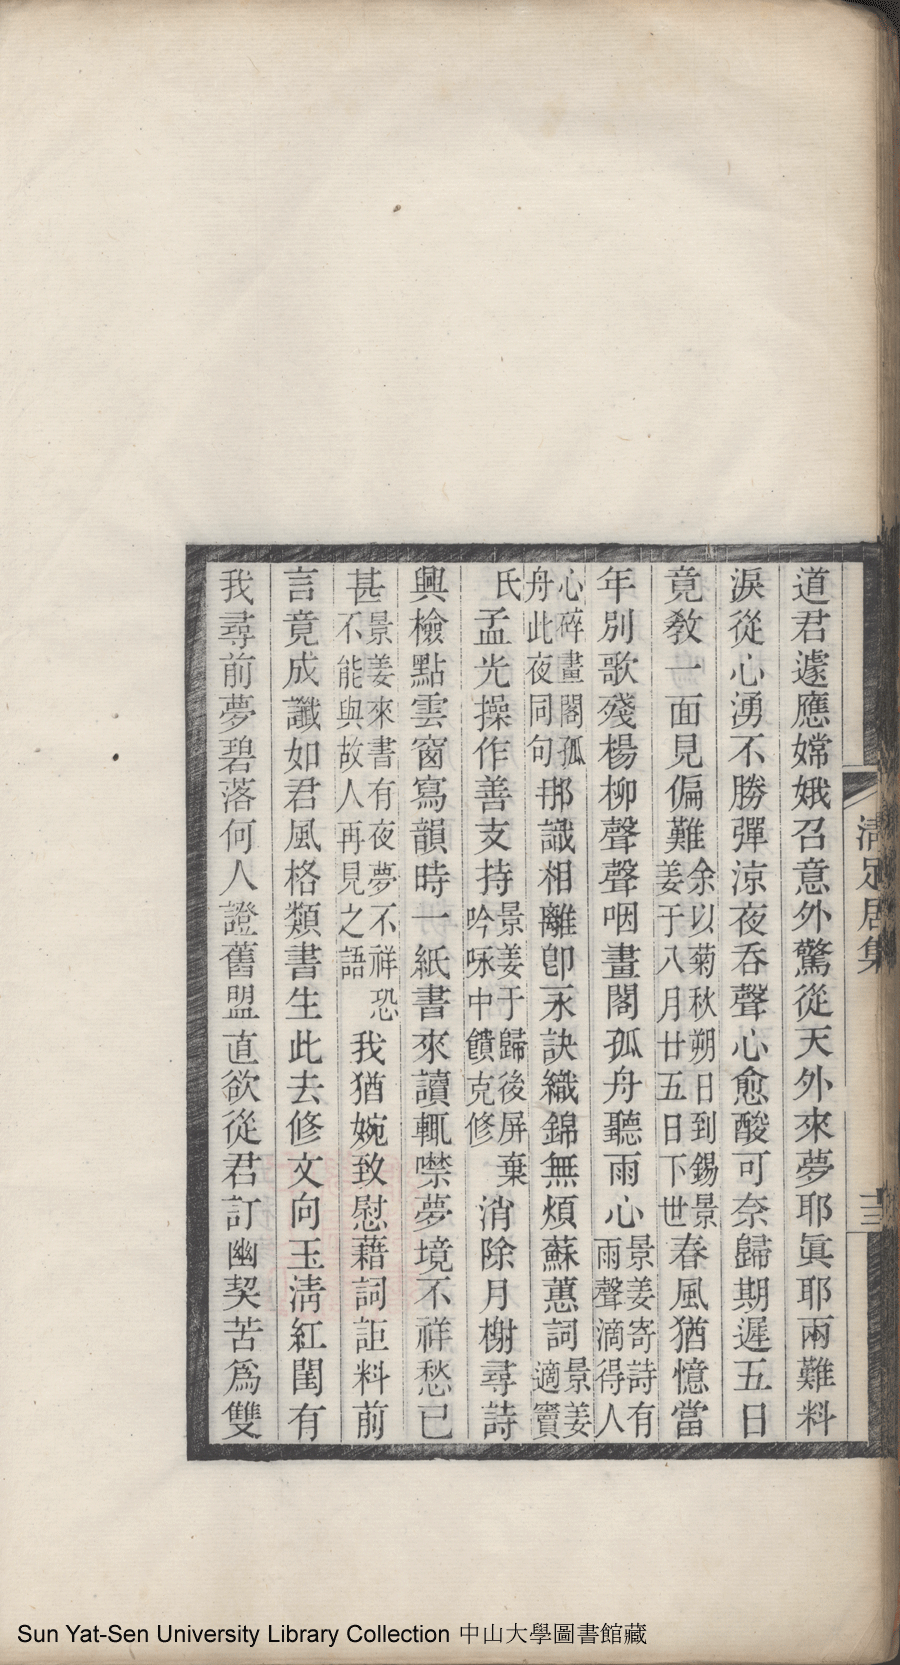 道君遽應嫦娥召意外驚從天外來夢耶眞耶兩難料
淚從心湧不勝彈涼夜吞聲心愈酸可奈歸期遲五日
竟敎一面見偏難余以菊秋朔日到錫景姜于八月廿五日下世春風猶憶當
年別歌殘楊柳聲聲咽畫閣孤舟聽雨心景姜寄詩有雨聲滴得人
心碎畫閣孤舟此夜同句那識相離卽永訣織錦無煩蘇蕙詞景姜適竇
氏孟光操作善支持景姜于歸後屏棄吟咏中饋克修消除月榭尋詩
興檢點雲窗寫韻時一紙書來讀輒噤夢境不祥愁已
甚景姜來書有夜夢不祥恐不能與故人再見之語我猶婉致慰藉詞詎料前
言竟成讖如君風格類書生此去修文向玉淸紅閨有
我尋前夢碧落何人證舊盟直欲從君訂幽契苦爲雙
清足居集
十三
Sun Yat-Sen University Library Collection 中山大學圖書館藏